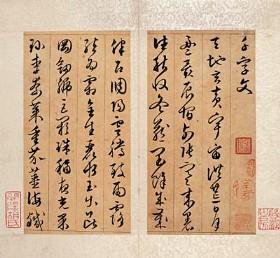 千字文
天地玄黃宇宙洪荒日月
盈昃辰宿列張寒來暑
往秋收冬藏閏餘成歲
律呂調陽雲騰致雨露
結為霜金生麗水玉出崑
岡劍號巨闕珠稱夜光菓
珍李柰菜重芥薑海鹹